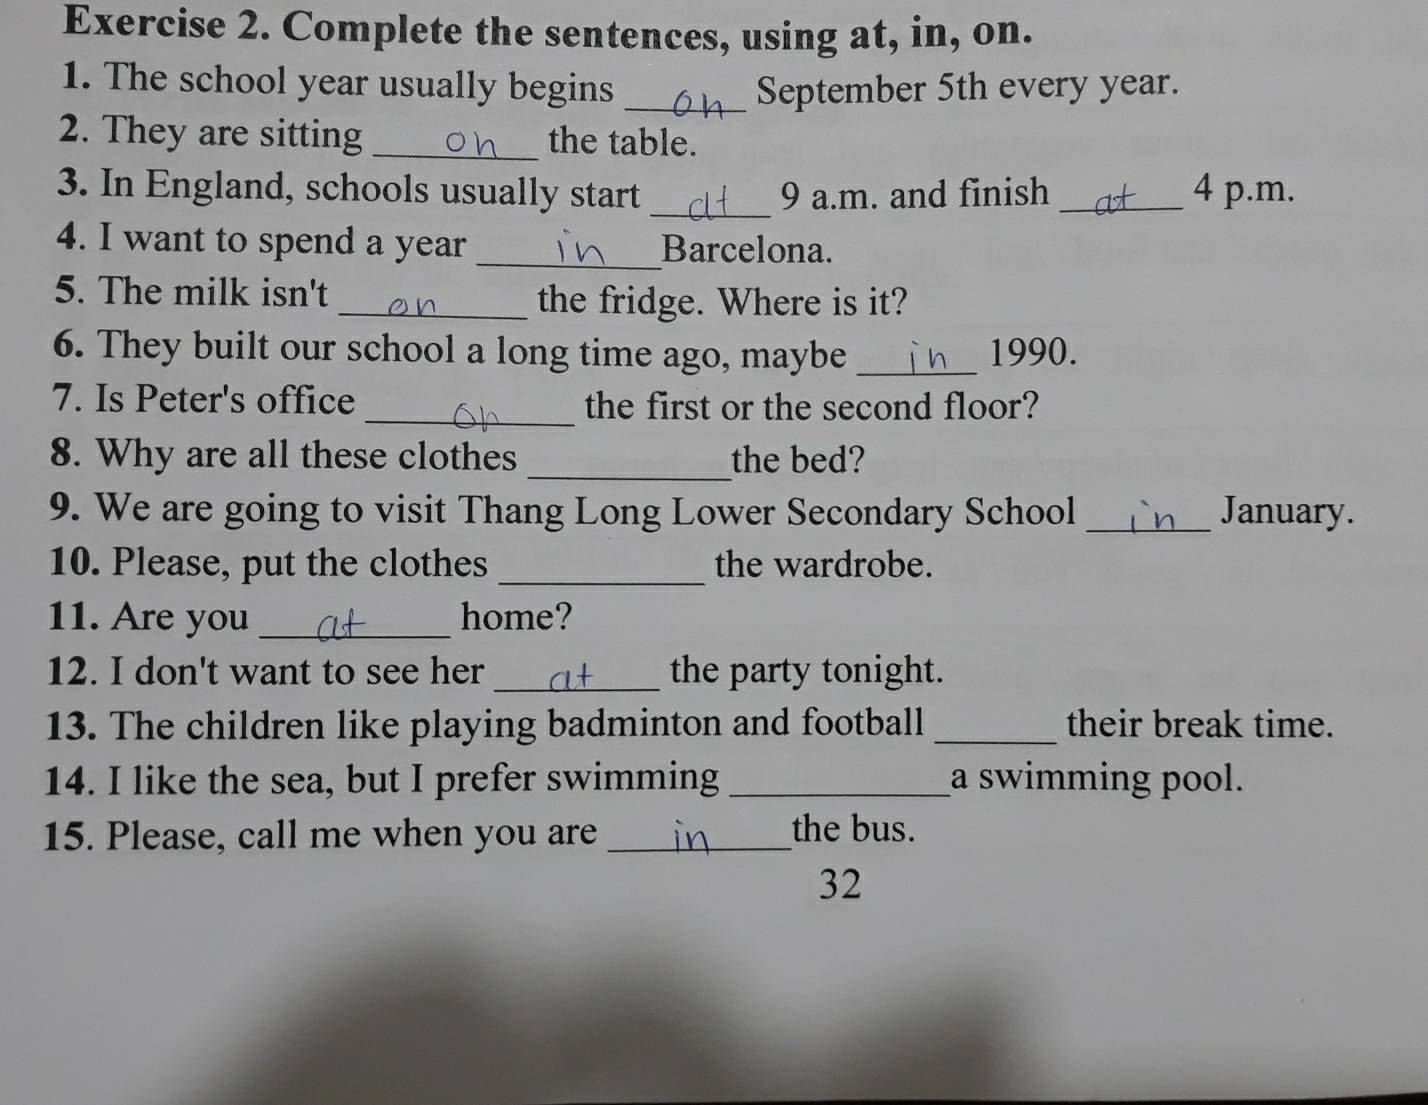 Exercise 2. Complete the sentences, using at, in, on.
1. The school year usually begins on September 5th every year.
2. They are sitting on the table.
3. In England, schools usually start at 9 a.m. and finish at 4 p.m.
4. I want to spend a year in Barcelona.
5. The milk isn't on the fridge. Where is it?
6. They built our school a long time ago, maybe in 1990.
7. Is Peter's office on the first or the second floor?
8. Why are all these clothes __________ the bed?
9. We are going to visit Thang Long Lower Secondary School in January.
10. Please, put the clothes __________ the wardrobe.
11. Are you at home?
12. I don't want to see her at the party tonight.
13. The children like playing badminton and football ______ their break time.
14. I like the sea, but I prefer swimming ___________ a swimming pool.
15. Please, call me when you are in the bus.
32